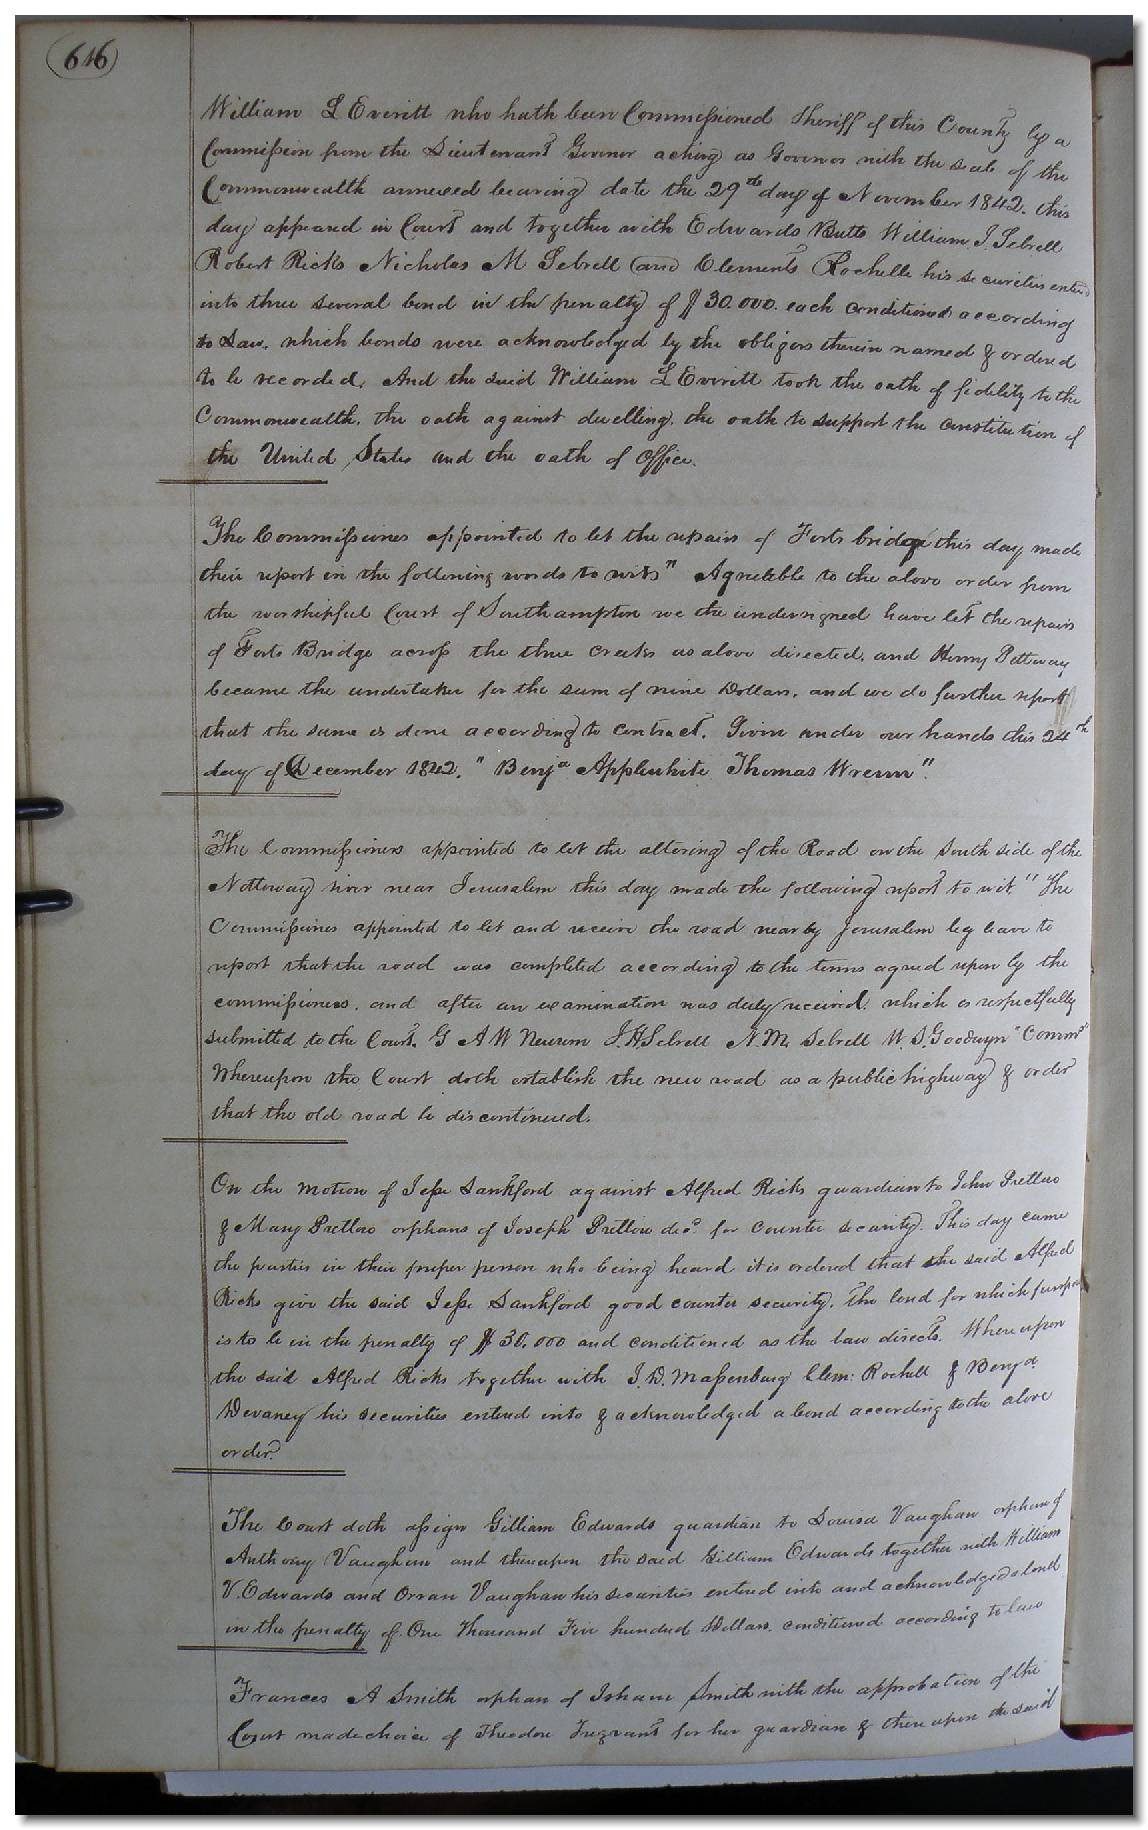 646
William L Everitt who hath been Commissioned Sheriff of this County by a
Commission from the Lieutenant Govenor acting as Govenor with the seal of the
Commonwealth annexed bearing date the 29th day of November 1842. this
day appeared in Court and together with Edwards Butts William J. Sebrell
Robert Ricks Nicholas M Sebrell and Clements Rochelle his securities entered
into three several bond in the penalty of $30.000. each conditioned according
to Law. which bonds were acknowledged by the obligors therein named & ordered
to be recorded, And the said William L Everitt took the oath of fidelity to the
Commonwealth. the oath against duelling. the oath to support the constitution of
the United States and the oath of Office.
The Commissioners appointed to let the repairs of Forts bridge this day made
their report in the following words to wit" Agreeble to the above order from
the worshipful Court of Southampton we the undersigned have let the repairs
of Forts Bridge across the three creeks as above directed. and Henry Pettway
became the undertaker for the sum of nine Dollars. and we do further report
that the same is done according to contract. Given under our hands this 24th
day of December 1842." Benja Applewhite Thomas Wrenn".
The Commissioners appointed to let the altering of the Road on the South side of the
Nottoway river near Jerusalem this day made the following report to wit. "The
Commissioners appointed to let and receive the road near by Jerusalem beg leave to
report that the road was completed according to the terms agreed upon by the
commissioners. and after an examination was duly received. which is respectfully
submitted to the Court. G A W Newsum J.H. Sebrell N.M. Sebrell W.S. Goodwyn "Commrs"
Whereupon the Court doth establish the new road as a public highway & order
that the old road be discontinued.
On the motion of Jesse Lankford against Alfred Ricks guardian to John Pretlow
& Mary Pretlow orphans of Joseph Pretlow decd. for counter security. This day came
the parties in their proper person who being heard it is ordered that the said Alfred
Ricks give the said Jesse Lankford good counter security. The bond for which purpose
is to be in the penalty of $30.000 and conditioned as the law directs. Whereupon
the said Alfred Ricks together with J. D. Massenburg Clem: Rochell & Benja
Devaney his securities entered into & acknowledged a bond according to the above
order.
The Court doth assign Gilliam Edwards guardian to Louisa Vaughan orphan of
Anthony Vaughan and thereupon the said Gilliam Edwards together with William
V. Edwards and Orran Vaughan his securities entered into and acknowledged a bond
in the penalty of One Thousand Five hundred Dollars. conditioned according to law
Frances A Smith orphan of Smith with the approbation of the
Court made choice of Theodore Trezvant for her guardian & thereupon the said